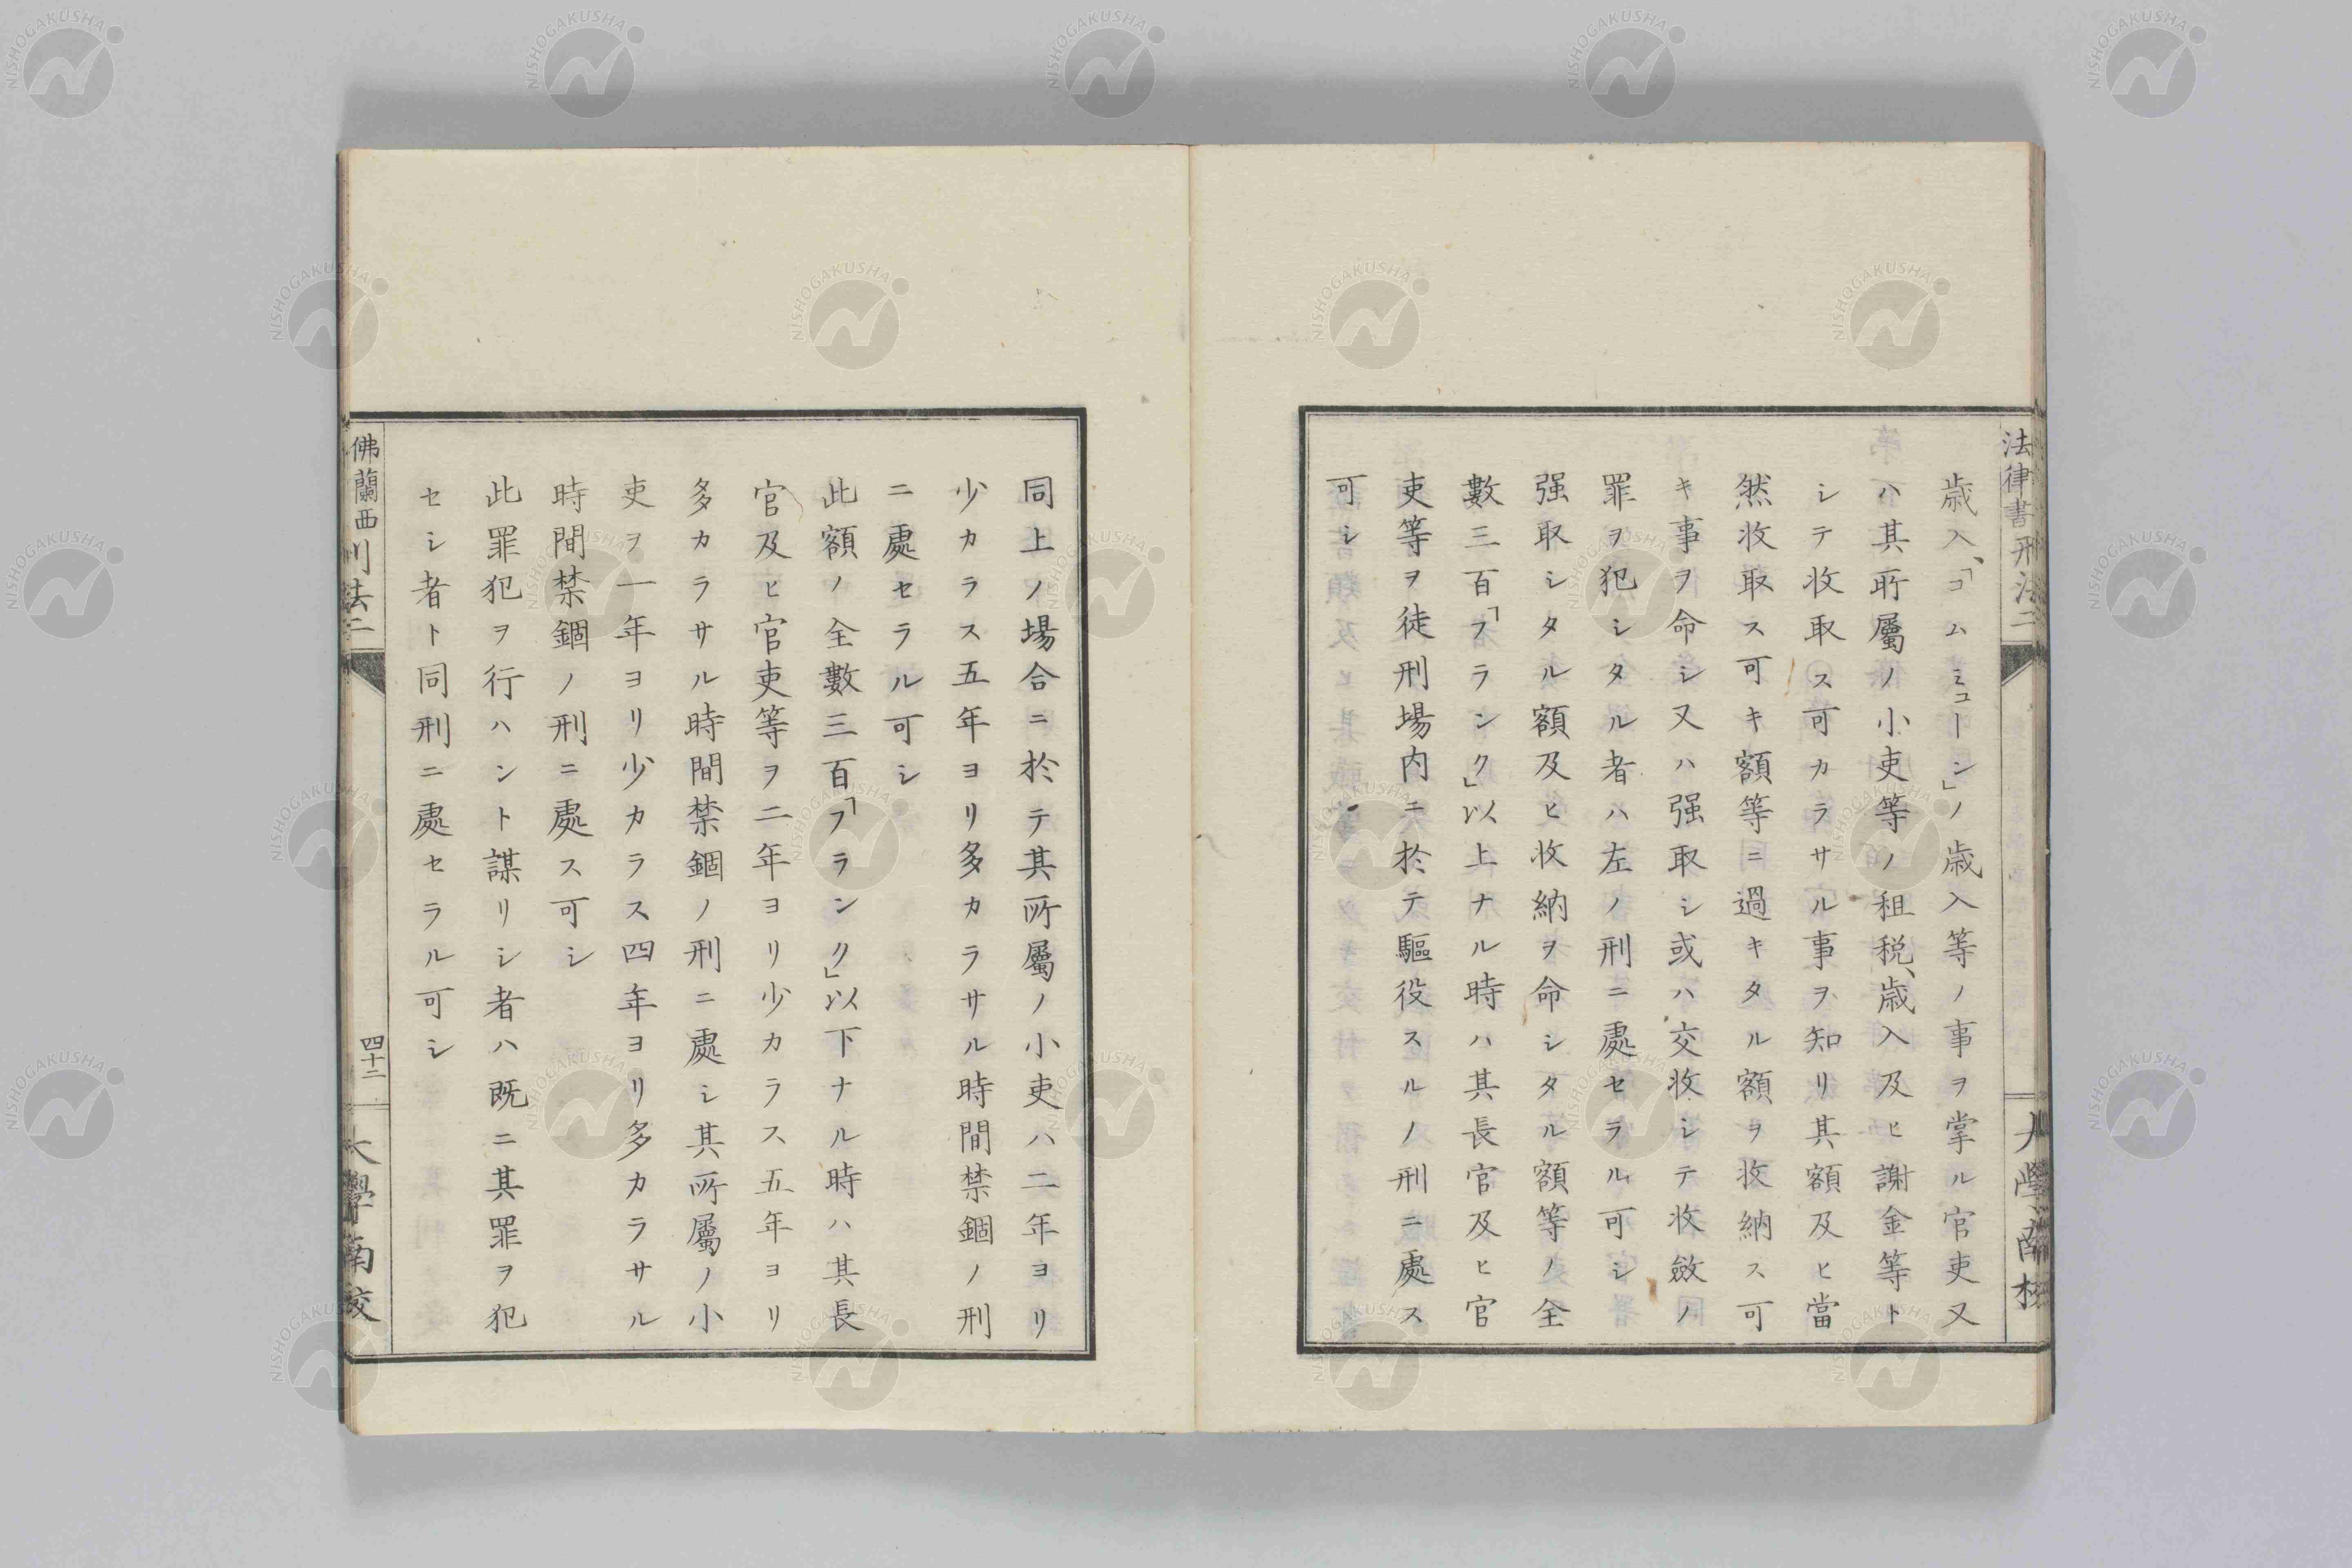 法律書刑法二
大學南校
歲入、「コムミューン」ノ歲入等ノ事ヲ掌ル官吏又
ハ其所屬ノ小吏等ノ租稅、歲入及ヒ謝金等ト
シテ收取ス可カラサル事ヲ知リ其額及ヒ當
然收取ス可キ額等ニ過キタル額ヲ收納ス可
キ事ヲ命シ又ハ强取シ或ハ交收シテ收斂ノ
罪ヲ犯シタル者ハ左ノ刑ニ處セラル可シ
强取シタル額及ヒ收納ヲ命シタル額等ノ全
數三百「フランク」以上ナル時ハ其長官及ヒ官
吏等ヲ徒刑場內ニ於テ驅役スルノ刑ニ處ス
可シ
同上ノ場合ニ於テ其所屬ノ小吏ハ二年ヨリ
少カラス五年ヨリ多カラサル時間禁錮ノ刑
ニ處セラル可シ
此額ノ全數三百「フランク」以下ナル時ハ其長
官及ヒ官吏等ヲ二年ヨリ少カラス五年ヨリ
多カラサル時間禁錮ノ刑ニ處シ其所屬ノ小
吏ヲ一年ヨリ少カラス四年ヨリ多カラサル
時間禁錮ノ刑ニ處ス可シ
此罪犯ヲ行ハント謀リシ者ハ既ニ其罪ヲ犯
セシ者ト同刑ニ處セラル可シ
佛蘭西刑法二
四十二
大學南校
NISHOGAKUSHA